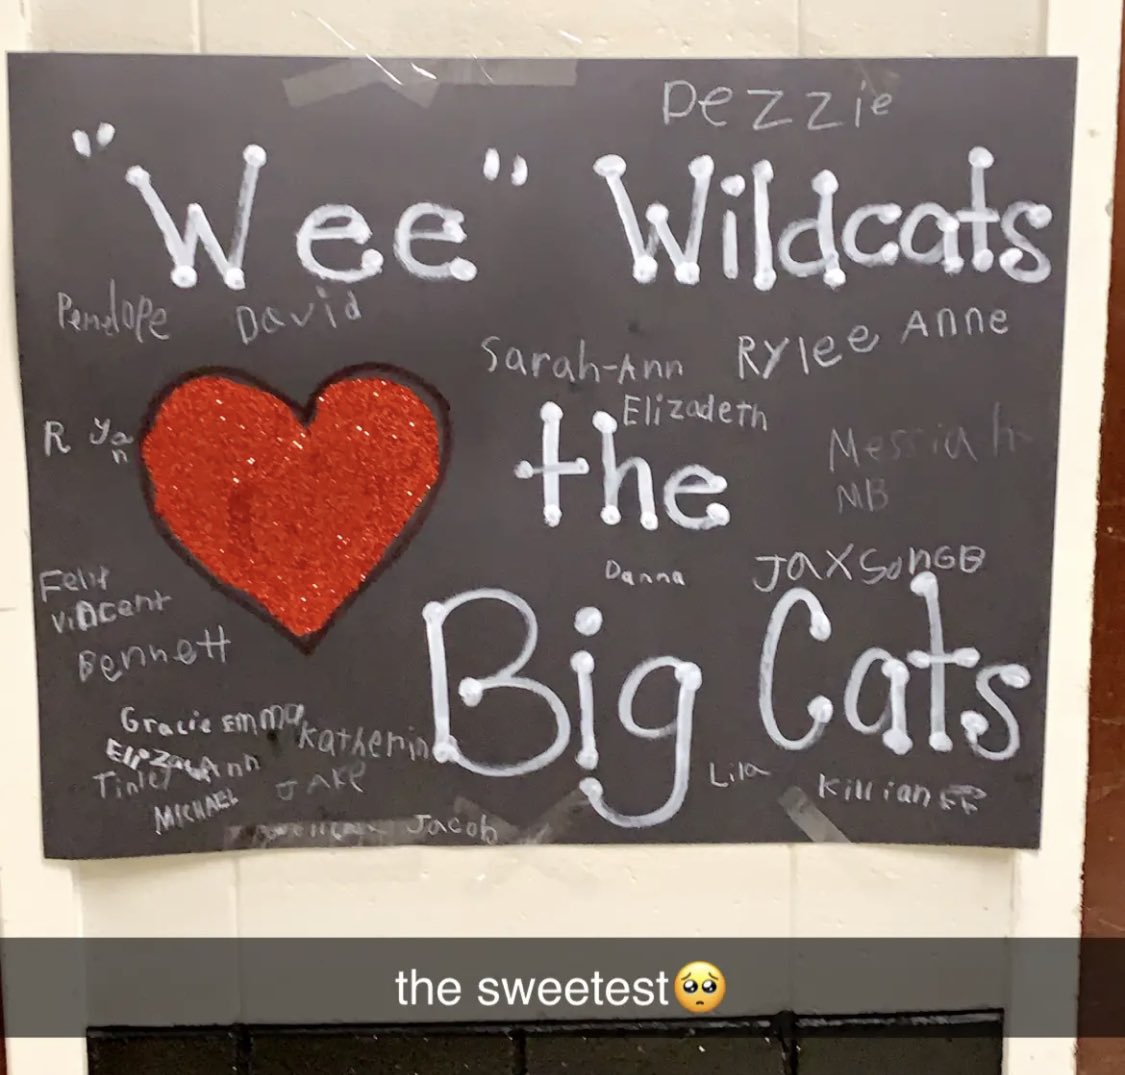 Dezzie
"Wee" Wildcats
Penelope David
Sarah-Ann Rylee Anne
Elizadeth
R yan
the
Messiah
MB
Danna JAXSONGB
Felix
Vincent
Big Cats
Bennett
Gracie Emma
Katherin
Ann
Tinley
JAKE
MICHAEL
Lila
Killian
Jacob
the sweetest🥺